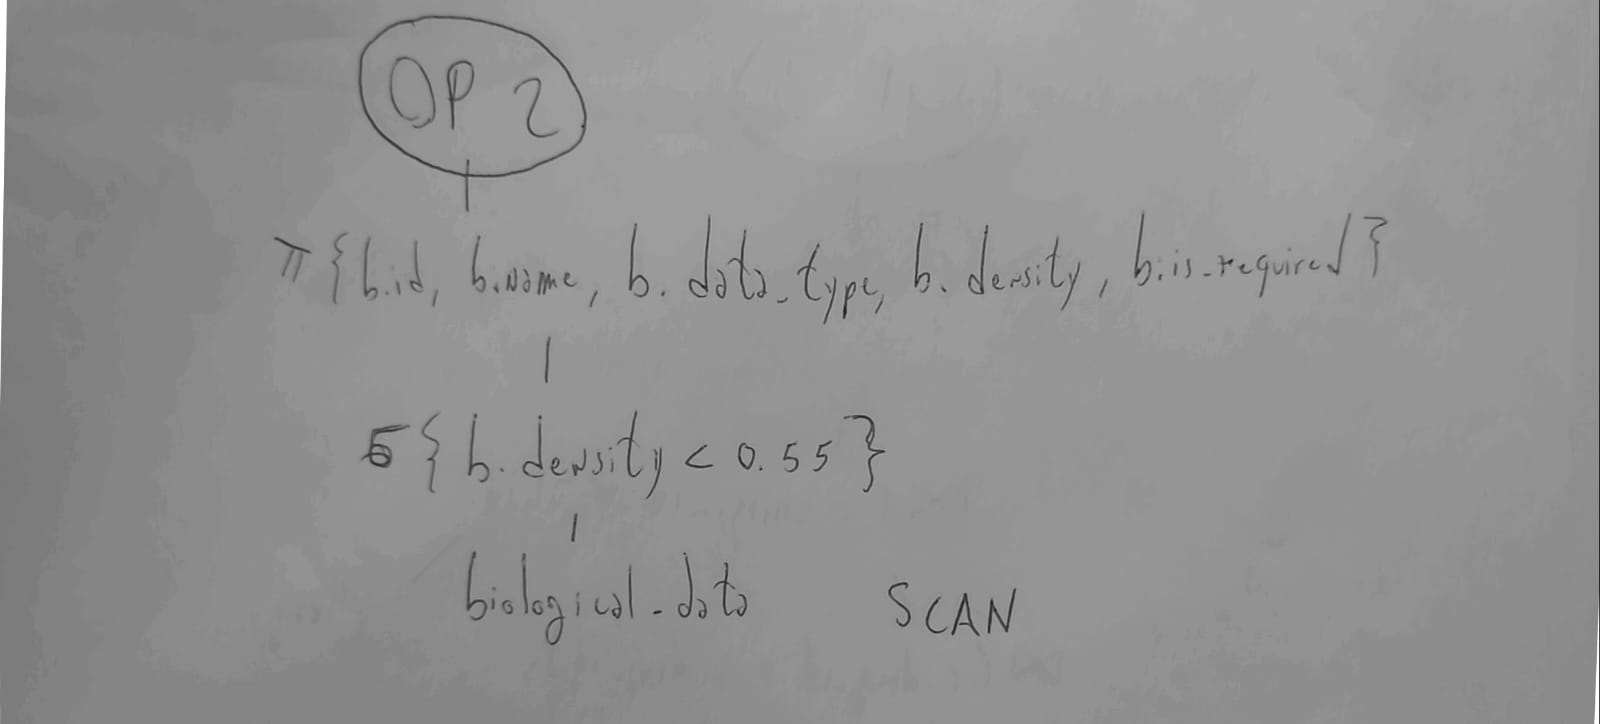 OP 2
π{b.id, b.name, b.data_type, b.density, b.is_required}
σ{b.density < 0.55}
biological_data SCAN